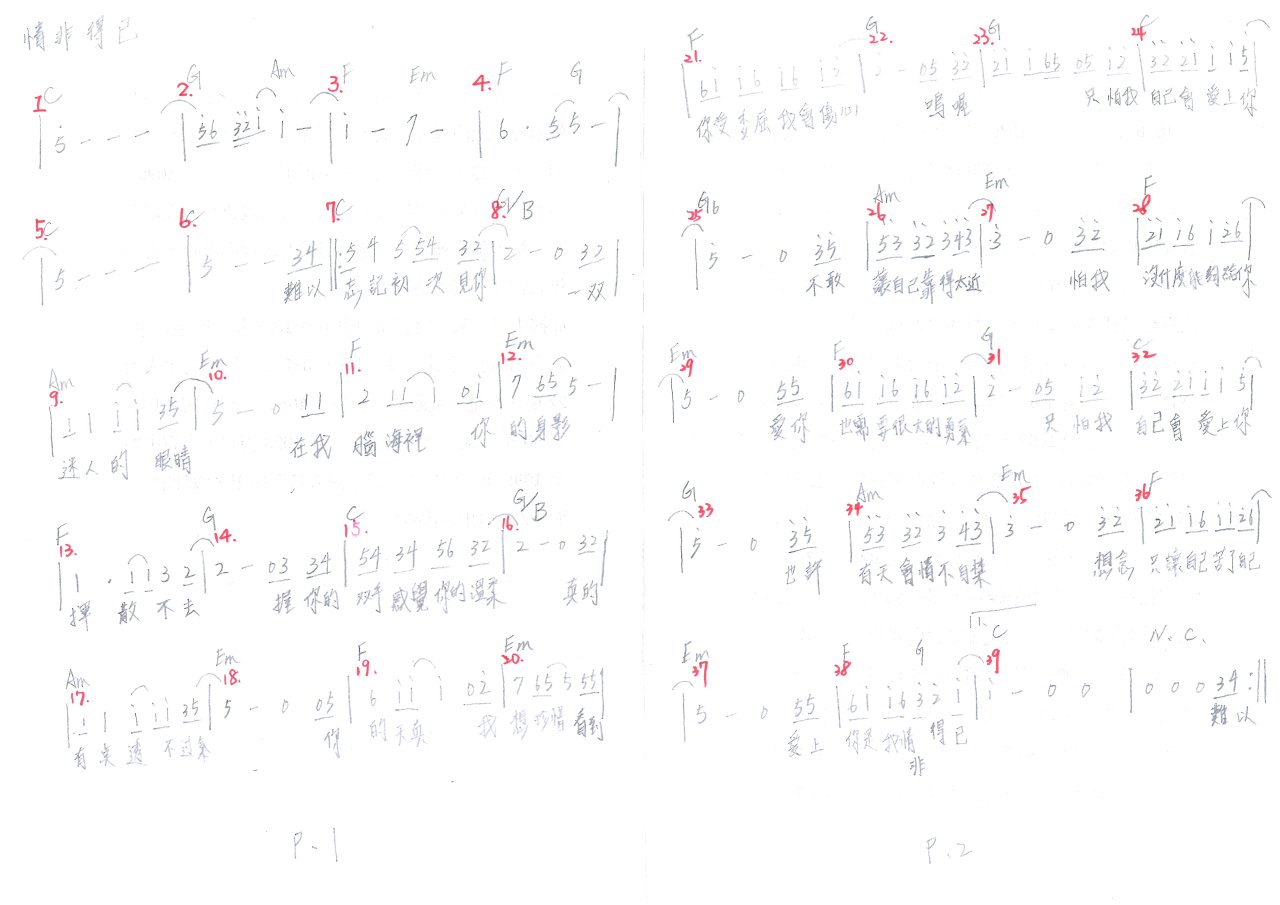 情非得已
C G Am F Em F G
1. 2. 3. 4.
| 5 - - - | 56 32i i - | i - 7 - | 6 · 5 5 - |
C C C G/B
5. 6. 7. 8.
| 5 - - - | 5 - - 34 |: 5 4 5 54 32 | 2 - 0 32 |
難以 忘記初 次 見你 一双
Am Em F Em
9. 10. 11. 12.
| 1 1 i i 35 | 5 - 0 11 | 2 11 1 0i | 7 65 5 - |
迷人的 眼睛 在我 腦海裡 你 的身影
F G C G/B
13. 14. 15. 16.
| 1 · 1 1 3 2 | 2 - 03 34 | 54 34 56 32 | 2 - 0 32 |
揮 散 不去 握 你的 双手 感覺 你的溫柔 真的
Am Em F Em
17. 18. 19. 20.
| 1 1 i ii 35 | 5 - 0 05 | 6 ii i 02 | 7 65 5 55 |
有 点 透 不過氣 你 的天真 我 想珍惜 看到
P.1
F G G C
21. 22. 23. 24.
| 6i i6 i6 i2 | 2 - 05 32 | 2i i 65 05 i2 | 32 2i i i 5 |
你受委屈 我會傷心 嗚喔 只 怕我 自己會 愛上你
G Am Em F
25 26 27 28
| 5 - 0 35 | 53 32 343 | 3 - 0 32 | 2i i6 i 26 |
不敢 讓自己靠得太近 怕我 沒什麼能夠給你
Em F G C
29 30 31 32
| 5 - 0 55 | 6i i6 i6 i2 | 2 - 05 i2 | 32 2i i i 5 |
愛你 也需要很大的勇氣 只 怕我 自己會 愛上你
G Am Em F
33 34 35 36
| 5 - 0 35 | 53 32 3 43 | 3 - 0 32 | 2i i6 ii 26 |
也許 有天會情不自禁 想念 只讓自己苦了自己
1. C N.C.
Em F G
37 38 39
| 5 - 0 55 | 6i i6 32 i | i - 0 0 | 0 0 0 34 :||
愛上 你是我情 得已 難以
非
P.2